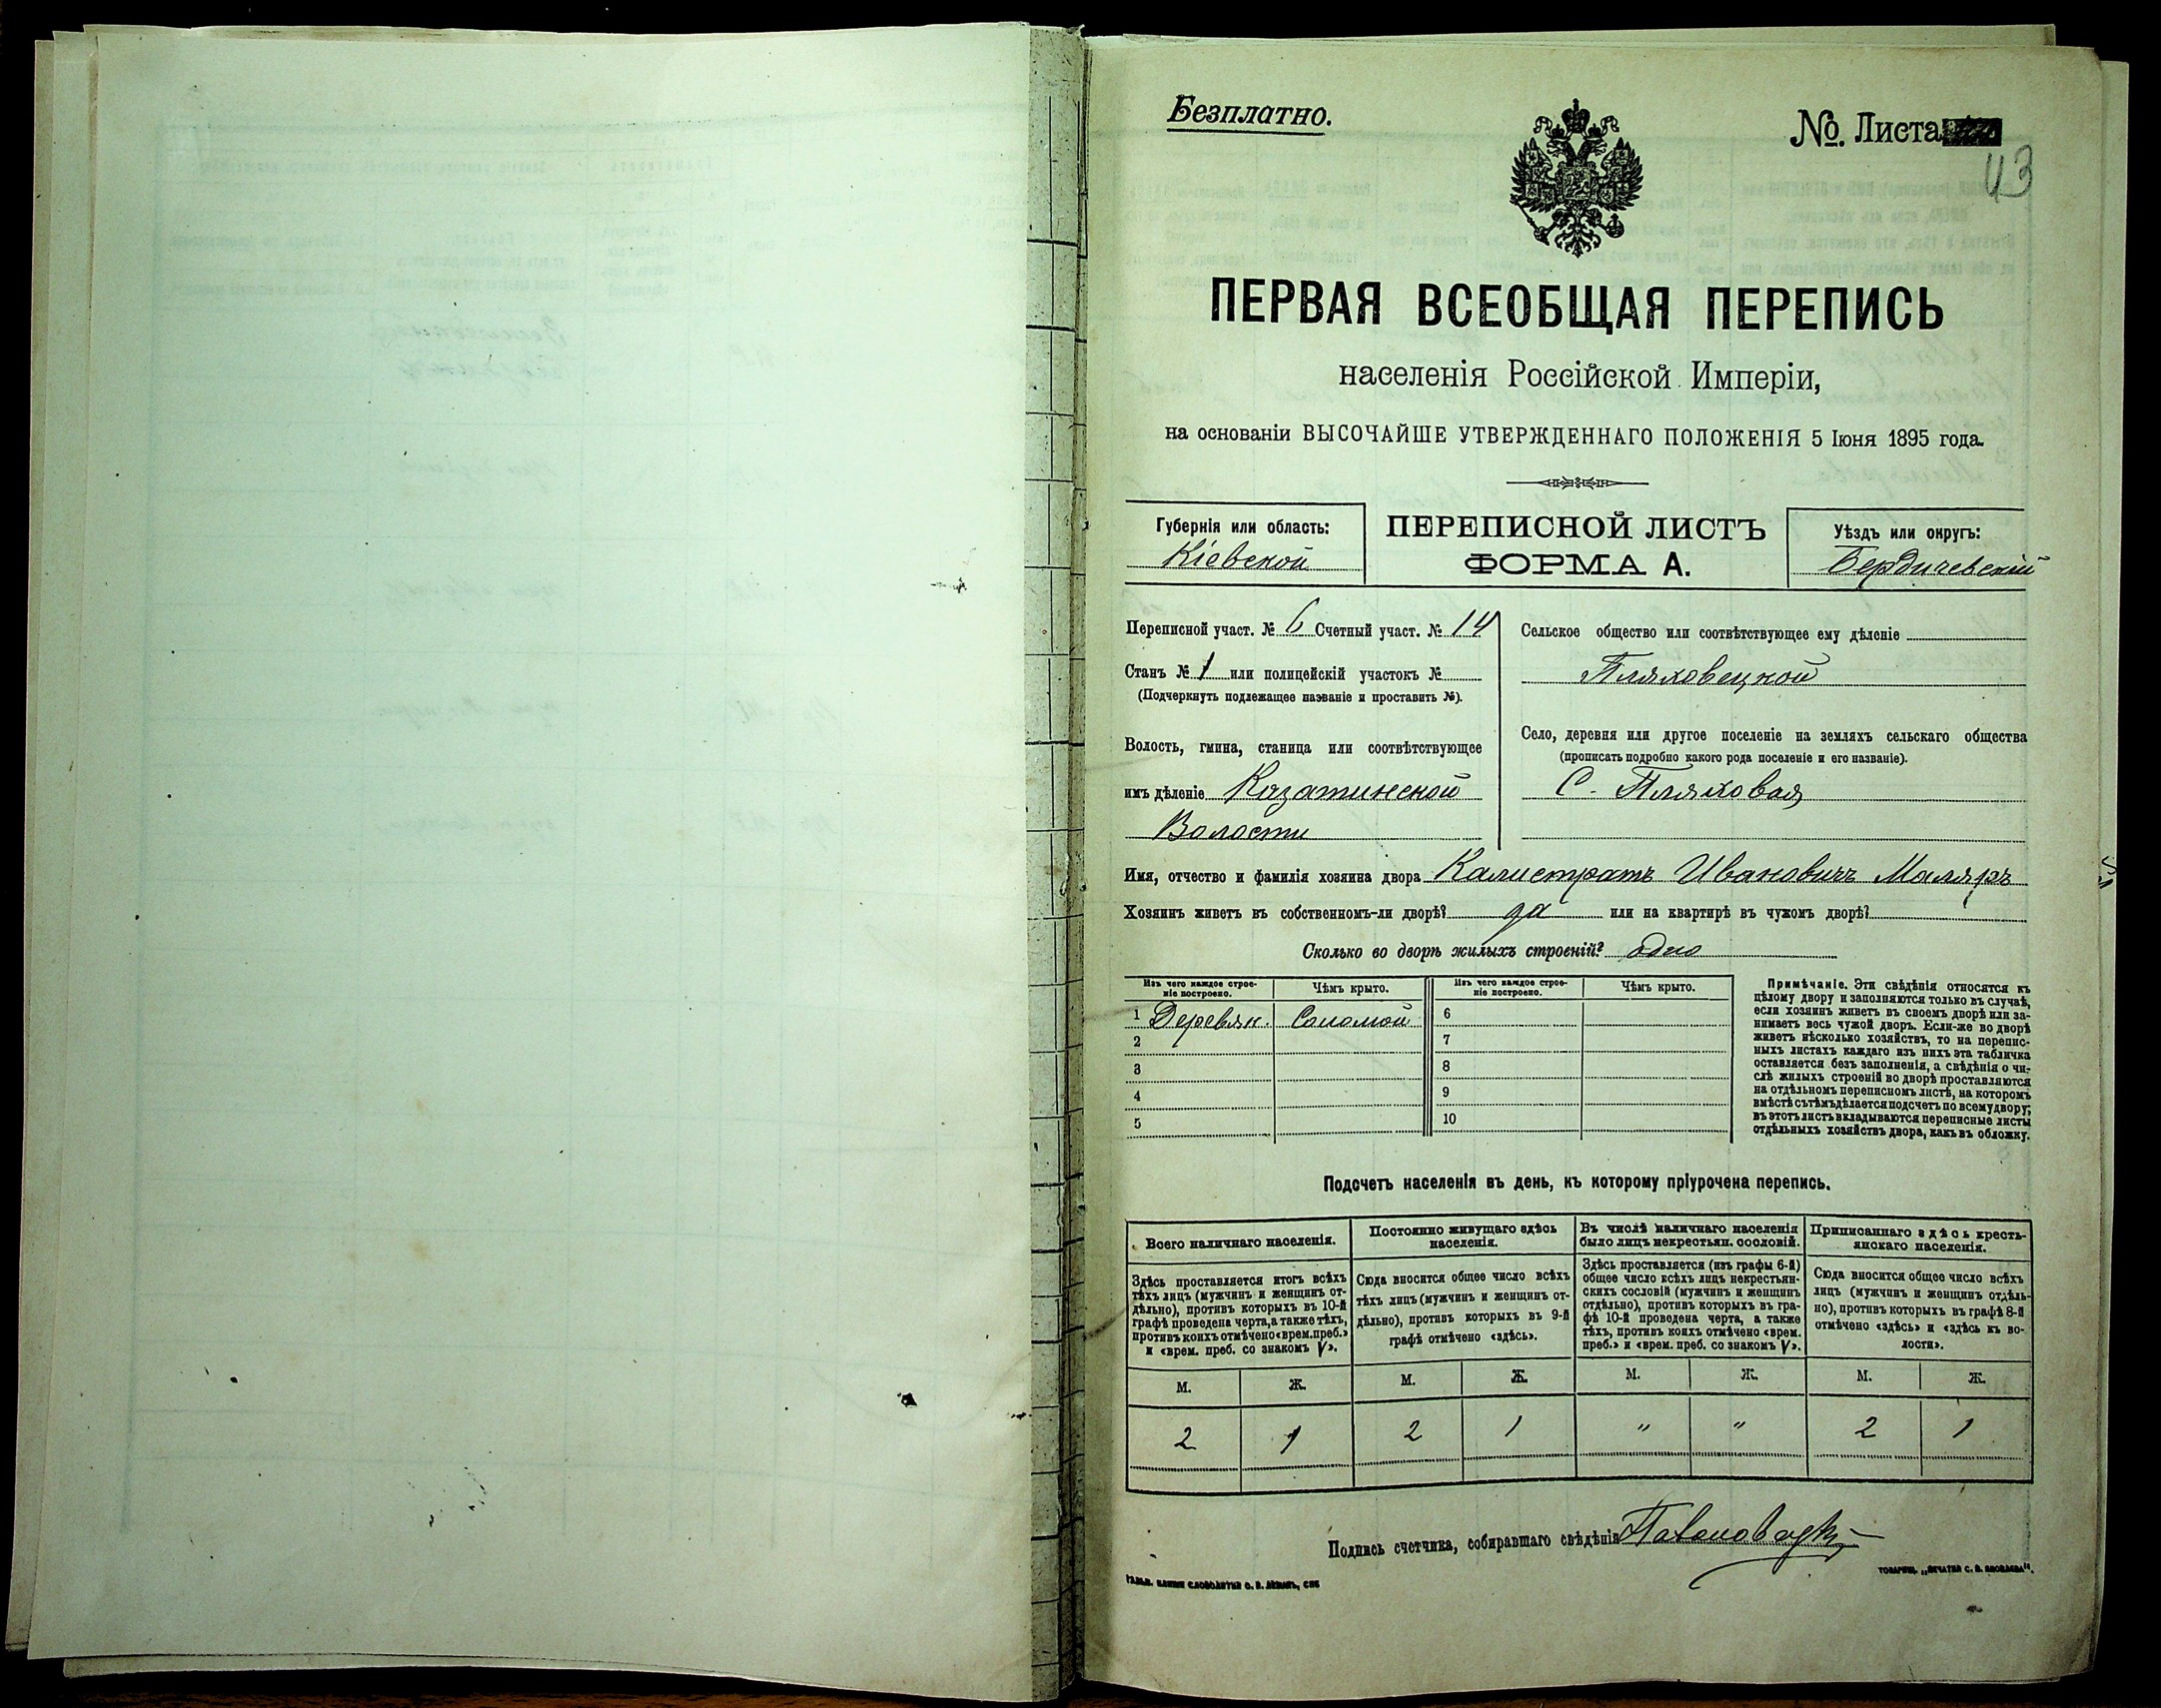 Безплатно.
№. Листа
43
ПЕРВАЯ ВСЕОБЩАЯ ПЕРЕПИСЬ
населенія Россійской Имперіи,
на основаніи ВЫСОЧАЙШЕ УТВЕРЖДЕННАГО ПОЛОЖЕНІЯ 5 Іюня 1895 года.
Губернія или область:
Кіевской
ПЕРЕПИСНОЙ ЛИСТЪ
ФОРМА А.
Уѣздъ или округъ:
Бердичевскій
Переписной участ. № 6 Счетный участ. № 14
Станъ № 1 или полицейскій участокъ №
(Подчеркнуть подлежащее названіе и проставить №).
Волость, гмина, станица или соотвѣтствующее
имъ дѣленіе Казатинской
Волости
Сельское общество или соотвѣтствующее ему дѣленіе
Пляховецкой
Село, деревня или другое поселеніе на земляхъ сельскаго общества
(прописать подробно какого рода поселеніе и его названіе).
С. Пляховая
Имя, отчество и фамилія хозяина двора Калистратъ Ивановичъ Маляръ
Хозяинъ живетъ въ собственномъ-ли дворѣ? да или на квартирѣ въ чужомъ дворѣ?
Сколько во дворѣ жилыхъ строеній? одно
Изъ чего каждое строе-
ніе построено.
Чѣмъ крыто.
Изъ чего каждое строе-
ніе построено.
Чѣмъ крыто.
1 Деревян. Соломой 6
2 7
3 8
4 9
5 10
Примѣчаніе. Эти свѣдѣнія относятся къ
цѣлому двору и заполняются только въ случаѣ,
если хозяинъ живетъ въ своемъ дворѣ или за-
нимаетъ весь чужой дворъ. Если-же во дворѣ
живетъ нѣсколько хозяйствъ, то на перепис-
ныхъ листахъ каждаго изъ нихъ эта табличка
оставляется безъ заполненія, а свѣдѣнія о чи-
слѣ жилыхъ строеній во дворѣ проставляются
на отдѣльномъ переписномъ листѣ, на которомъ
вмѣстѣ съ тѣмъ дѣлается подсчетъ по всему двору;
въ этотъ листъ вкладываются переписные листы
отдѣльныхъ хозяйствъ двора, какъ въ обложку.
Подсчетъ населенія въ день, къ которому пріурочена перепись.
Всего наличнаго населенія.
Здѣсь проставляется итогъ всѣхъ
тѣхъ лицъ (мужчинъ и женщинъ от-
дѣльно), противъ которыхъ въ 10-й
графѣ проведена черта, а также тѣхъ,
противъ коихъ отмѣчено «врем. преб.»
и «врем. преб. со знакомъ V».
Постоянно живущаго здѣсь
населенія.
Сюда вносится общее число всѣхъ
тѣхъ лицъ (мужчинъ и женщинъ от-
дѣльно), противъ которыхъ въ 9-й
графѣ отмѣчено «здѣсь».
Въ числѣ наличнаго населенія
было лицъ некрестьян. сословій.
Здѣсь проставляется (изъ графы 6-й)
общее число всѣхъ лицъ некрестьян-
скихъ сословій (мужчинъ и женщинъ
отдѣльно), противъ которыхъ въ гра-
фѣ 10-й проведена черта, а также
тѣхъ, противъ коихъ отмѣчено «врем.
преб.» и «врем. преб. со знакомъ V».
Приписаннаго здѣсь кресть-
янскаго населенія.
Сюда вносится общее число всѣхъ
лицъ (мужчинъ и женщинъ отдѣль-
но), противъ которыхъ въ графѣ 8-й
отмѣчено «здѣсь» и «здѣсь въ во-
лости».
М. Ж. М. Ж. М. Ж. М. Ж.
2 1 2 1 " " 2 1
Подпись счетчика, собиравшаго свѣдѣнія